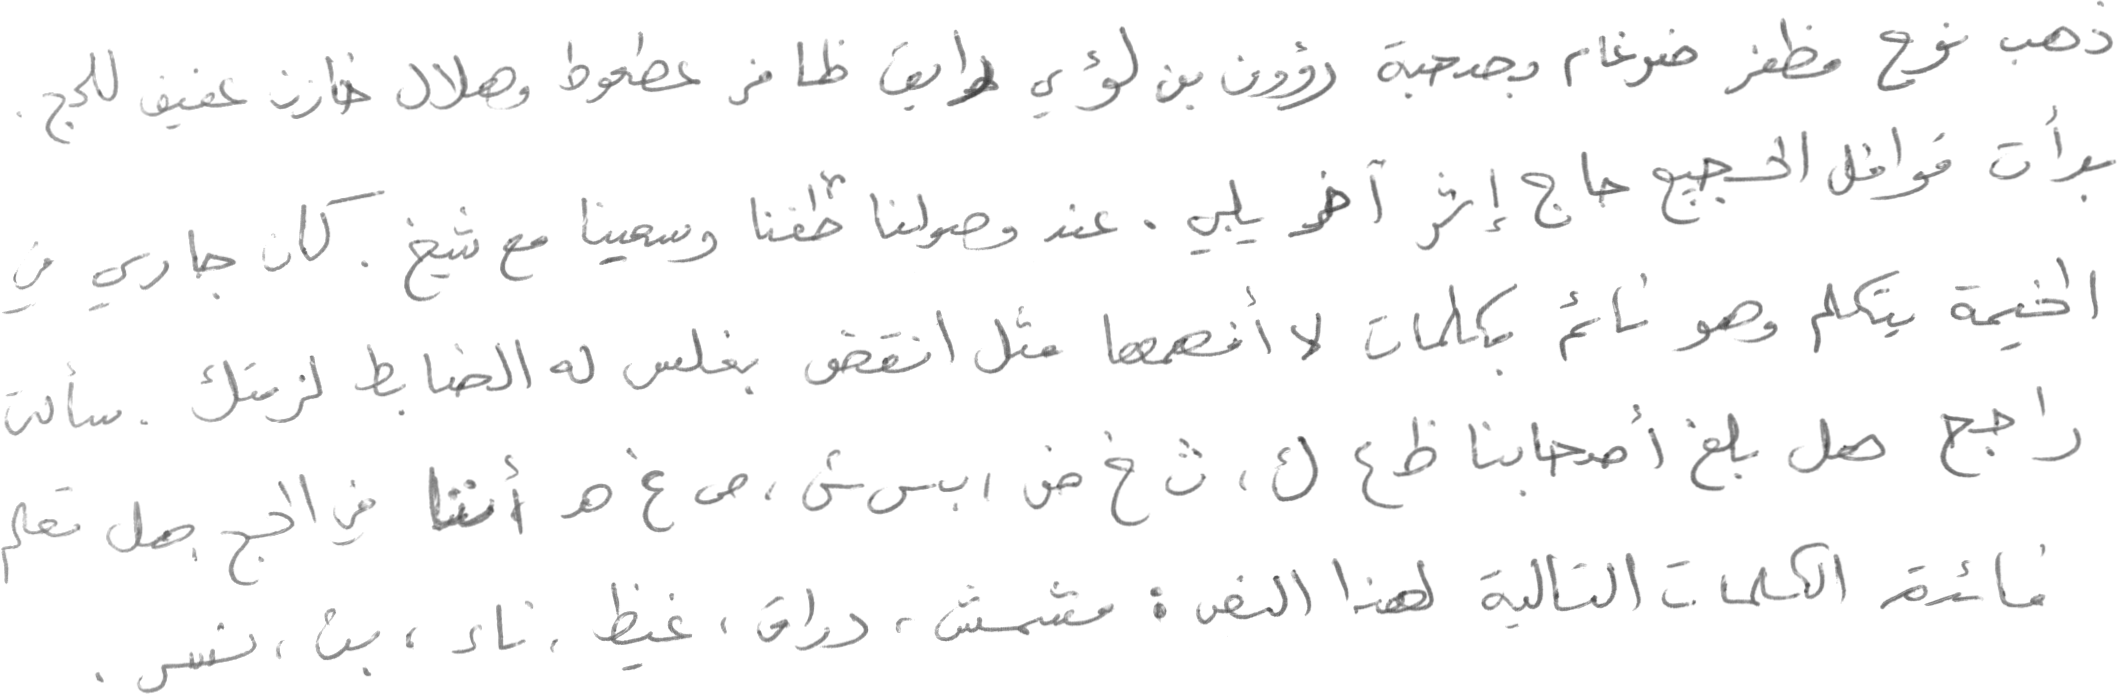 ذهب نوح مظفر ضرغام وبصحبة رؤوف بن لؤي رايق ظافر عطعوط وهلال خازن عفيف للحج .
بدأت قوافل الحجيج حاج إثر آخر يلبي . عند وصولنا طفنا وسعينا مع شيخ . كان جاري في
الخيمة يتكلم وهو نائم بكلمات لا أفهمها مثل انقض بغلس له الضابط لزمتك . سألت
راجح هل بلغ أصحابنا ظ ع ك ، ث خ ض ، ب س ش ، ص غ هـ أننا في الحج . هل تعلم
فائدة الكلمات التالية لهذا النص : مشمش ، دراق ، غيظ ، ناء ، بث ، نسر .